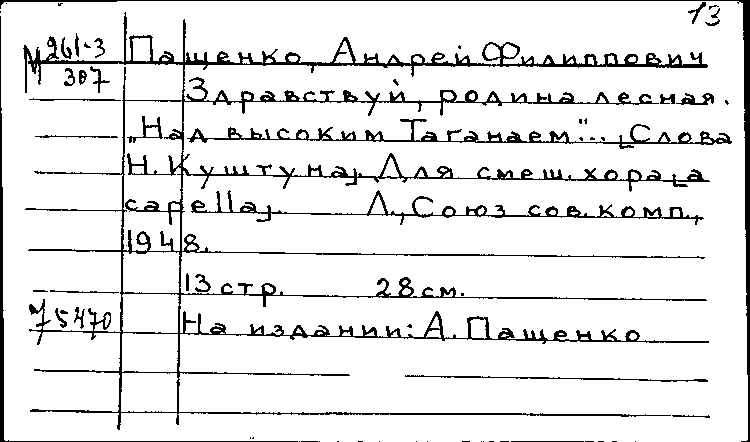 13
М 261-3 Пащенко, Андрей Филиппович
307
Здравствуй, родина лесная.
„Над высоким Таганаем"... [Слова
Н. Куштума]. Для смеш. хора [a
capella]. Л., Союз сов. комп.,
1948.
13 стр. 28 см.
75470 На издании: А. Пащенко